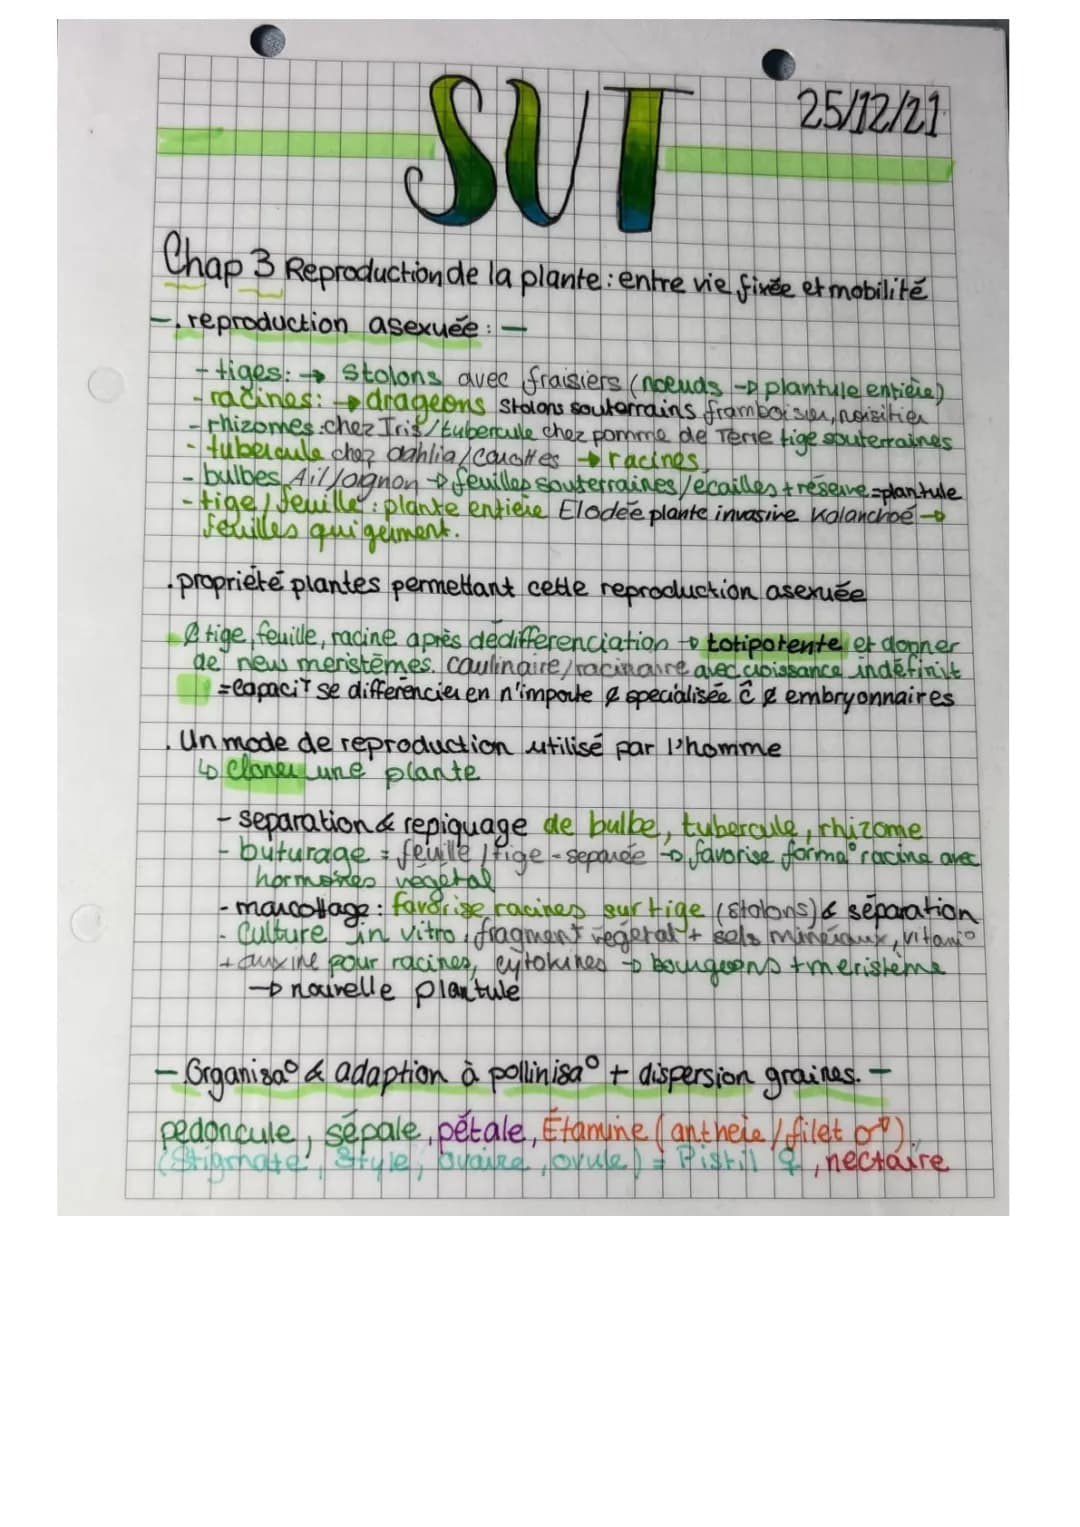 SVT
25/12/21
Chap 3 Reproduction de la plante : entre vie fixée et mobilité
- . reproduction asexuée : -
- tiges : → stolons avec fraisiers (nœuds → plantule entière)
- racines : → drageons stolons souterrains framboisier, noisitier
- rhizomes : chez Iris / tubercule chez pomme de Terre tige souterraines
- tubercule chez dahlia / carottes → racines
- bulbes Ail / oignon → feuilles souterraines / écailles + réserve = plantule
- tige / feuille : plante entière Elodée plante invasive Kalanchoé →
feuilles qui germent.
. propriété plantes permettant cette reproduction asexuée
¢ tige, feuille, racine après dédifférenciation → totipotente et donner
de new meristèmes. caulinaire / racinaire avec croissance indéfinit
= capaciT se différencier en n'importe ¢ specialisée ĉ ¢ embryonnaires
. Un mode de reproduction utilisé par l'homme
↳ cloner une plante
- separation & repiquage de bulbe, tubercule, rhizome
- buturage = feuille / tige - separée → favorise forma° racine avec
hormones végétal
- marcottage : favorise racines sur tige (stolons) & séparation
- Culture in vitro : fragment végétal + sels minéraux, vitami°
+ auxine pour racines, cytokines → bourgeons + meristème
→ nouvelle plantule
- Organisa° & adaption à pollinisa° + dispersion graines. -
pedoncule, sépale, pétale, Étamine (anthère / filet ♂),
(Stigmate, Style, ovaire, ovule) = Pistil ♀, nectaire